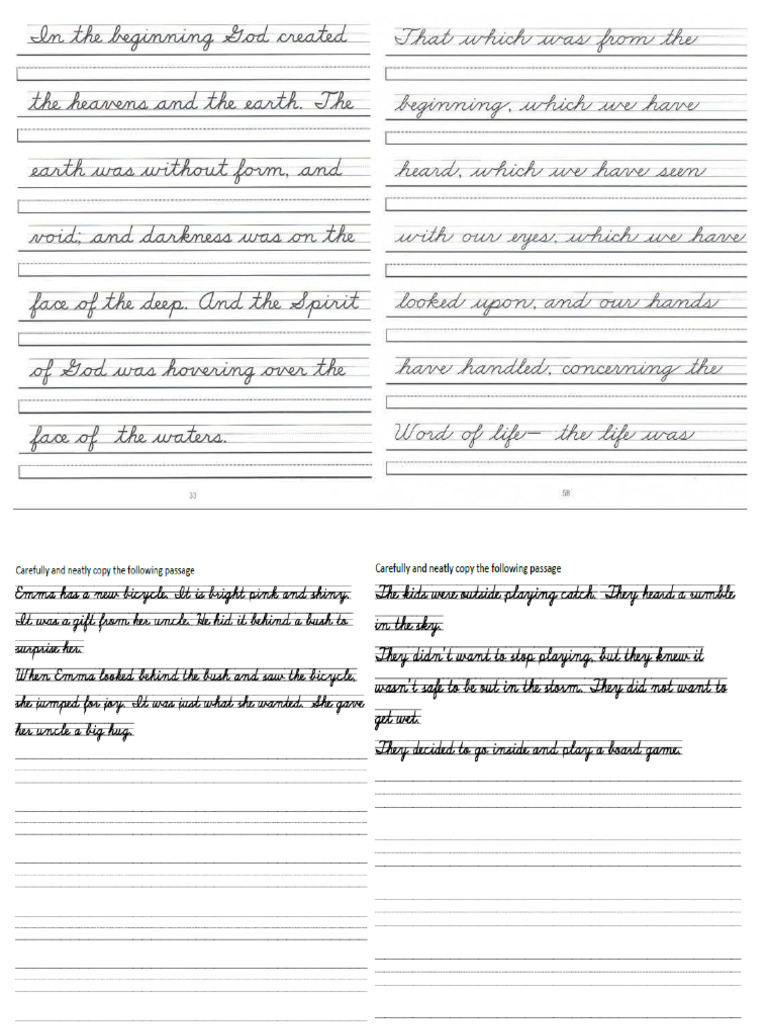 In the beginning God created
the heavens and the earth. The
earth was without form, and
void; and darkness was on the
face of the deep. And the Spirit
of God was hovering over the
face of the waters.
33
That which was from the
beginning, which we have
heard, which we have seen
with our eyes, which we have
looked upon, and our hands
have handled, concerning the
Word of life— the life was
58
Carefully and neatly copy the following passage
Emma has a new bicycle. It is bright pink and shiny.
It was a gift from her uncle. He hid it behind a bush to
surprise her.
When Emma looked behind the bush and saw the bicycle,
she jumped for joy. It was just what she wanted. She gave
her uncle a big hug.
Carefully and neatly copy the following passage
The kids were outside playing catch. They heard a rumble
in the sky.
They didn't want to stop playing, but they knew it
wasn't safe to be out in the storm. They did not want to
get wet.
They decided to go inside and play a board game.